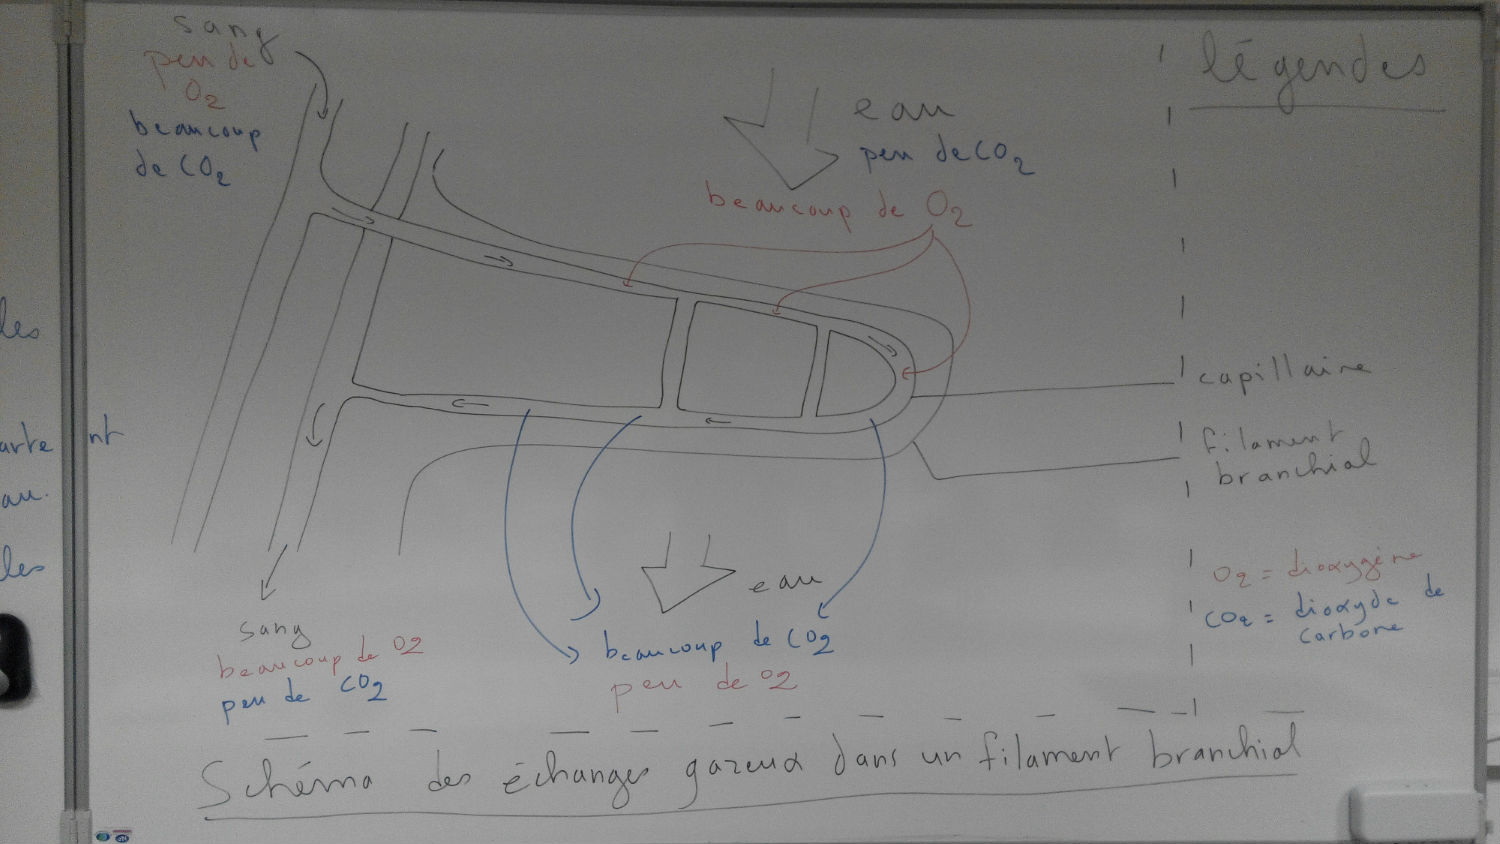 sang
peu de
O2
beaucoup
de CO2
eau
peu de CO2
beaucoup de O2
légendes
les
arte nt
au.
les
capillaire
filament
branchial
O2 = dioxygène
CO2 = dioxyde de
carbone
eau
beaucoup de CO2
peu de O2
sang
beaucoup de O2
peu de CO2
Schéma des échanges gazeux dans un filament branchial